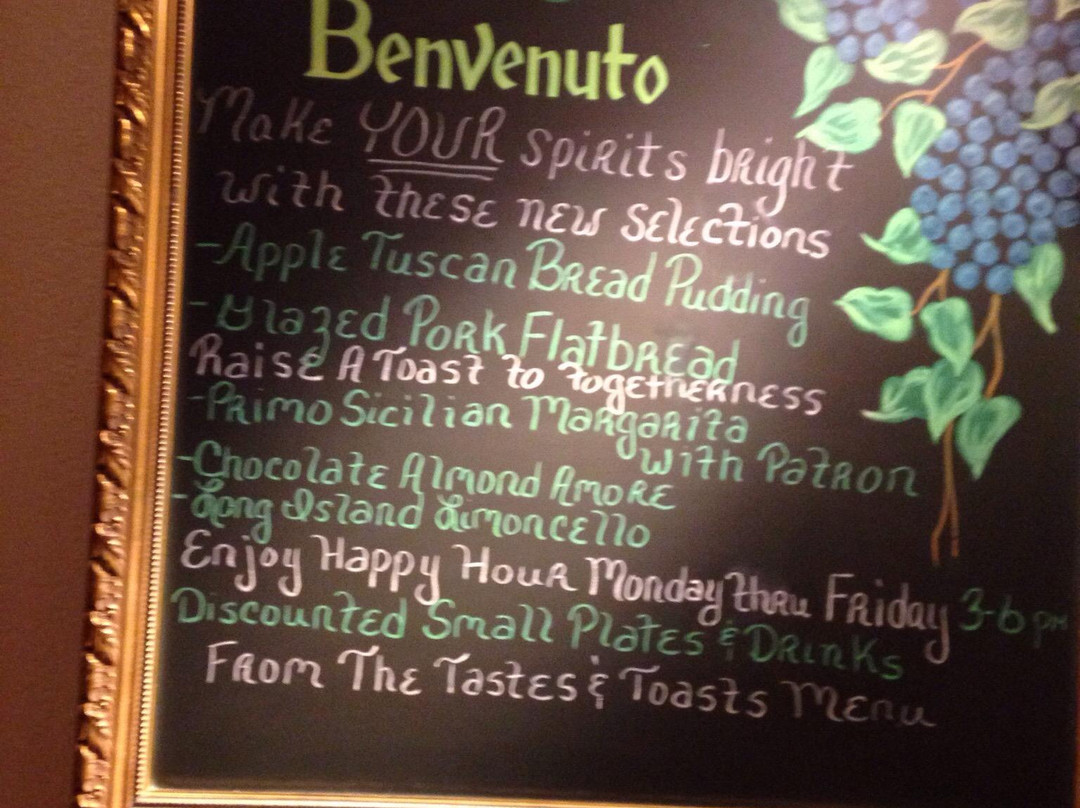 Benvenuto
Make YOUR spirits bright
with these new selections
-Apple Tuscan Bread Pudding
-Glazed Pork Flatbread
Raise A Toast to togetherness
-Primo Sicilian Margarita
with Patron
-Chocolate Almond Amore
-Long Island Limoncello
Enjoy Happy Hour Monday thru Friday 3-6 pm
Discounted Small Plates & Drinks
From The Tastes & Toasts Menu